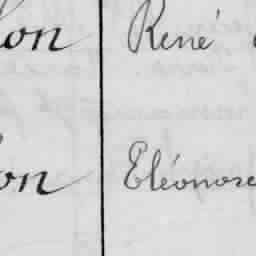 lon René
on Eléonore